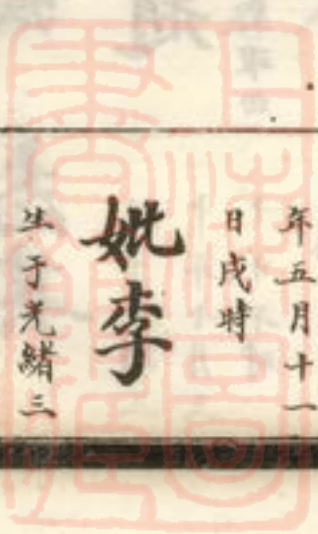 年五月十一
日戌時
妣李
生于光緒三